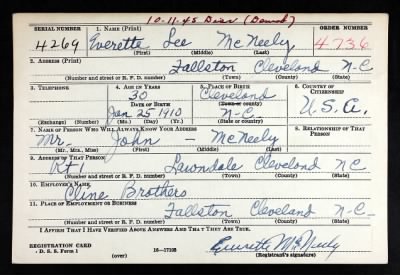 10-11-45 Disc (Demob)
SERIAL NUMBER 1. NAME (Print) ORDER NUMBER
4269 Everette Lee McNeely 4736
(First) (Middle) (Last)
2. ADDRESS (Print)
Fallston Cleveland N-C
(Number and street or R. F. D. number) (Town) (County) (State)
3. TELEPHONE 4. AGE IN YEARS 5. PLACE OF BIRTH 6. COUNTRY OF CITIZENSHIP
30 Cleveland
DATE OF BIRTH (Town or county)
Jan 25 1910 N-C U.S.A.
(Exchange) (Number) (Mo.) (Day) (Yr.) (State or country)
7. NAME OF PERSON WHO WILL ALWAYS KNOW YOUR ADDRESS 8. RELATIONSHIP OF THAT PERSON
Mr. John - McNeely
(Mr., Mrs., Miss) (First) (Middle) (Last)
9. ADDRESS OF THAT PERSON
Rt Lawndale Cleveland NC
(Number and street or R. F. D. number) (Town) (County) (State)
10. EMPLOYER'S NAME
Cline Brothers
11. PLACE OF EMPLOYMENT OR BUSINESS
Fallston Cleveland N-C-
(Number and street or R. F. D. number) (Town) (County) (State)
I AFFIRM THAT I HAVE VERIFIED ABOVE ANSWERS AND THAT THEY ARE TRUE.
REGISTRATION CARD 16-17105 Everette McNeely
D. S. S. Form 1 (over) (Registrant's signature)